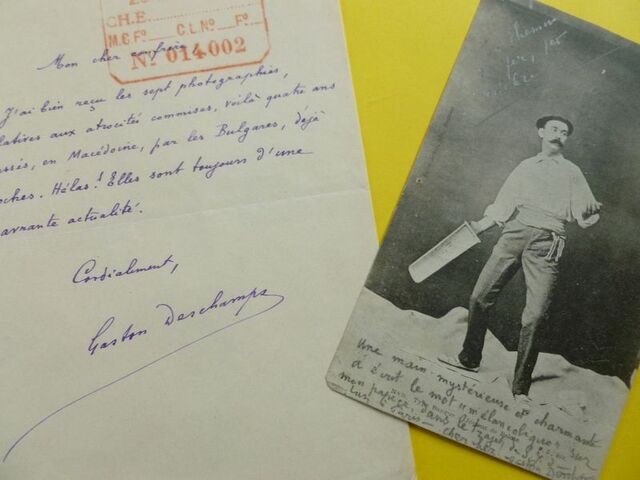 CH.E
M.C.Fº C.L.Nº Fº
Nº 014002
Mon cher confrère
J'ai bien reçu les sept photographies,
latives aux atrocités commises, voilà quatre ans
en Macédoine, par les Bulgares, déjà
oches. Hélas! Elles sont toujours d'une
avrante actualité.
Cordialement,
Gaston Deschamps
chemin
Une main mystérieuse et charmante
a écrit le mot "mélancolique" sur
mon papier, dans le trajet de
à Paris — cher